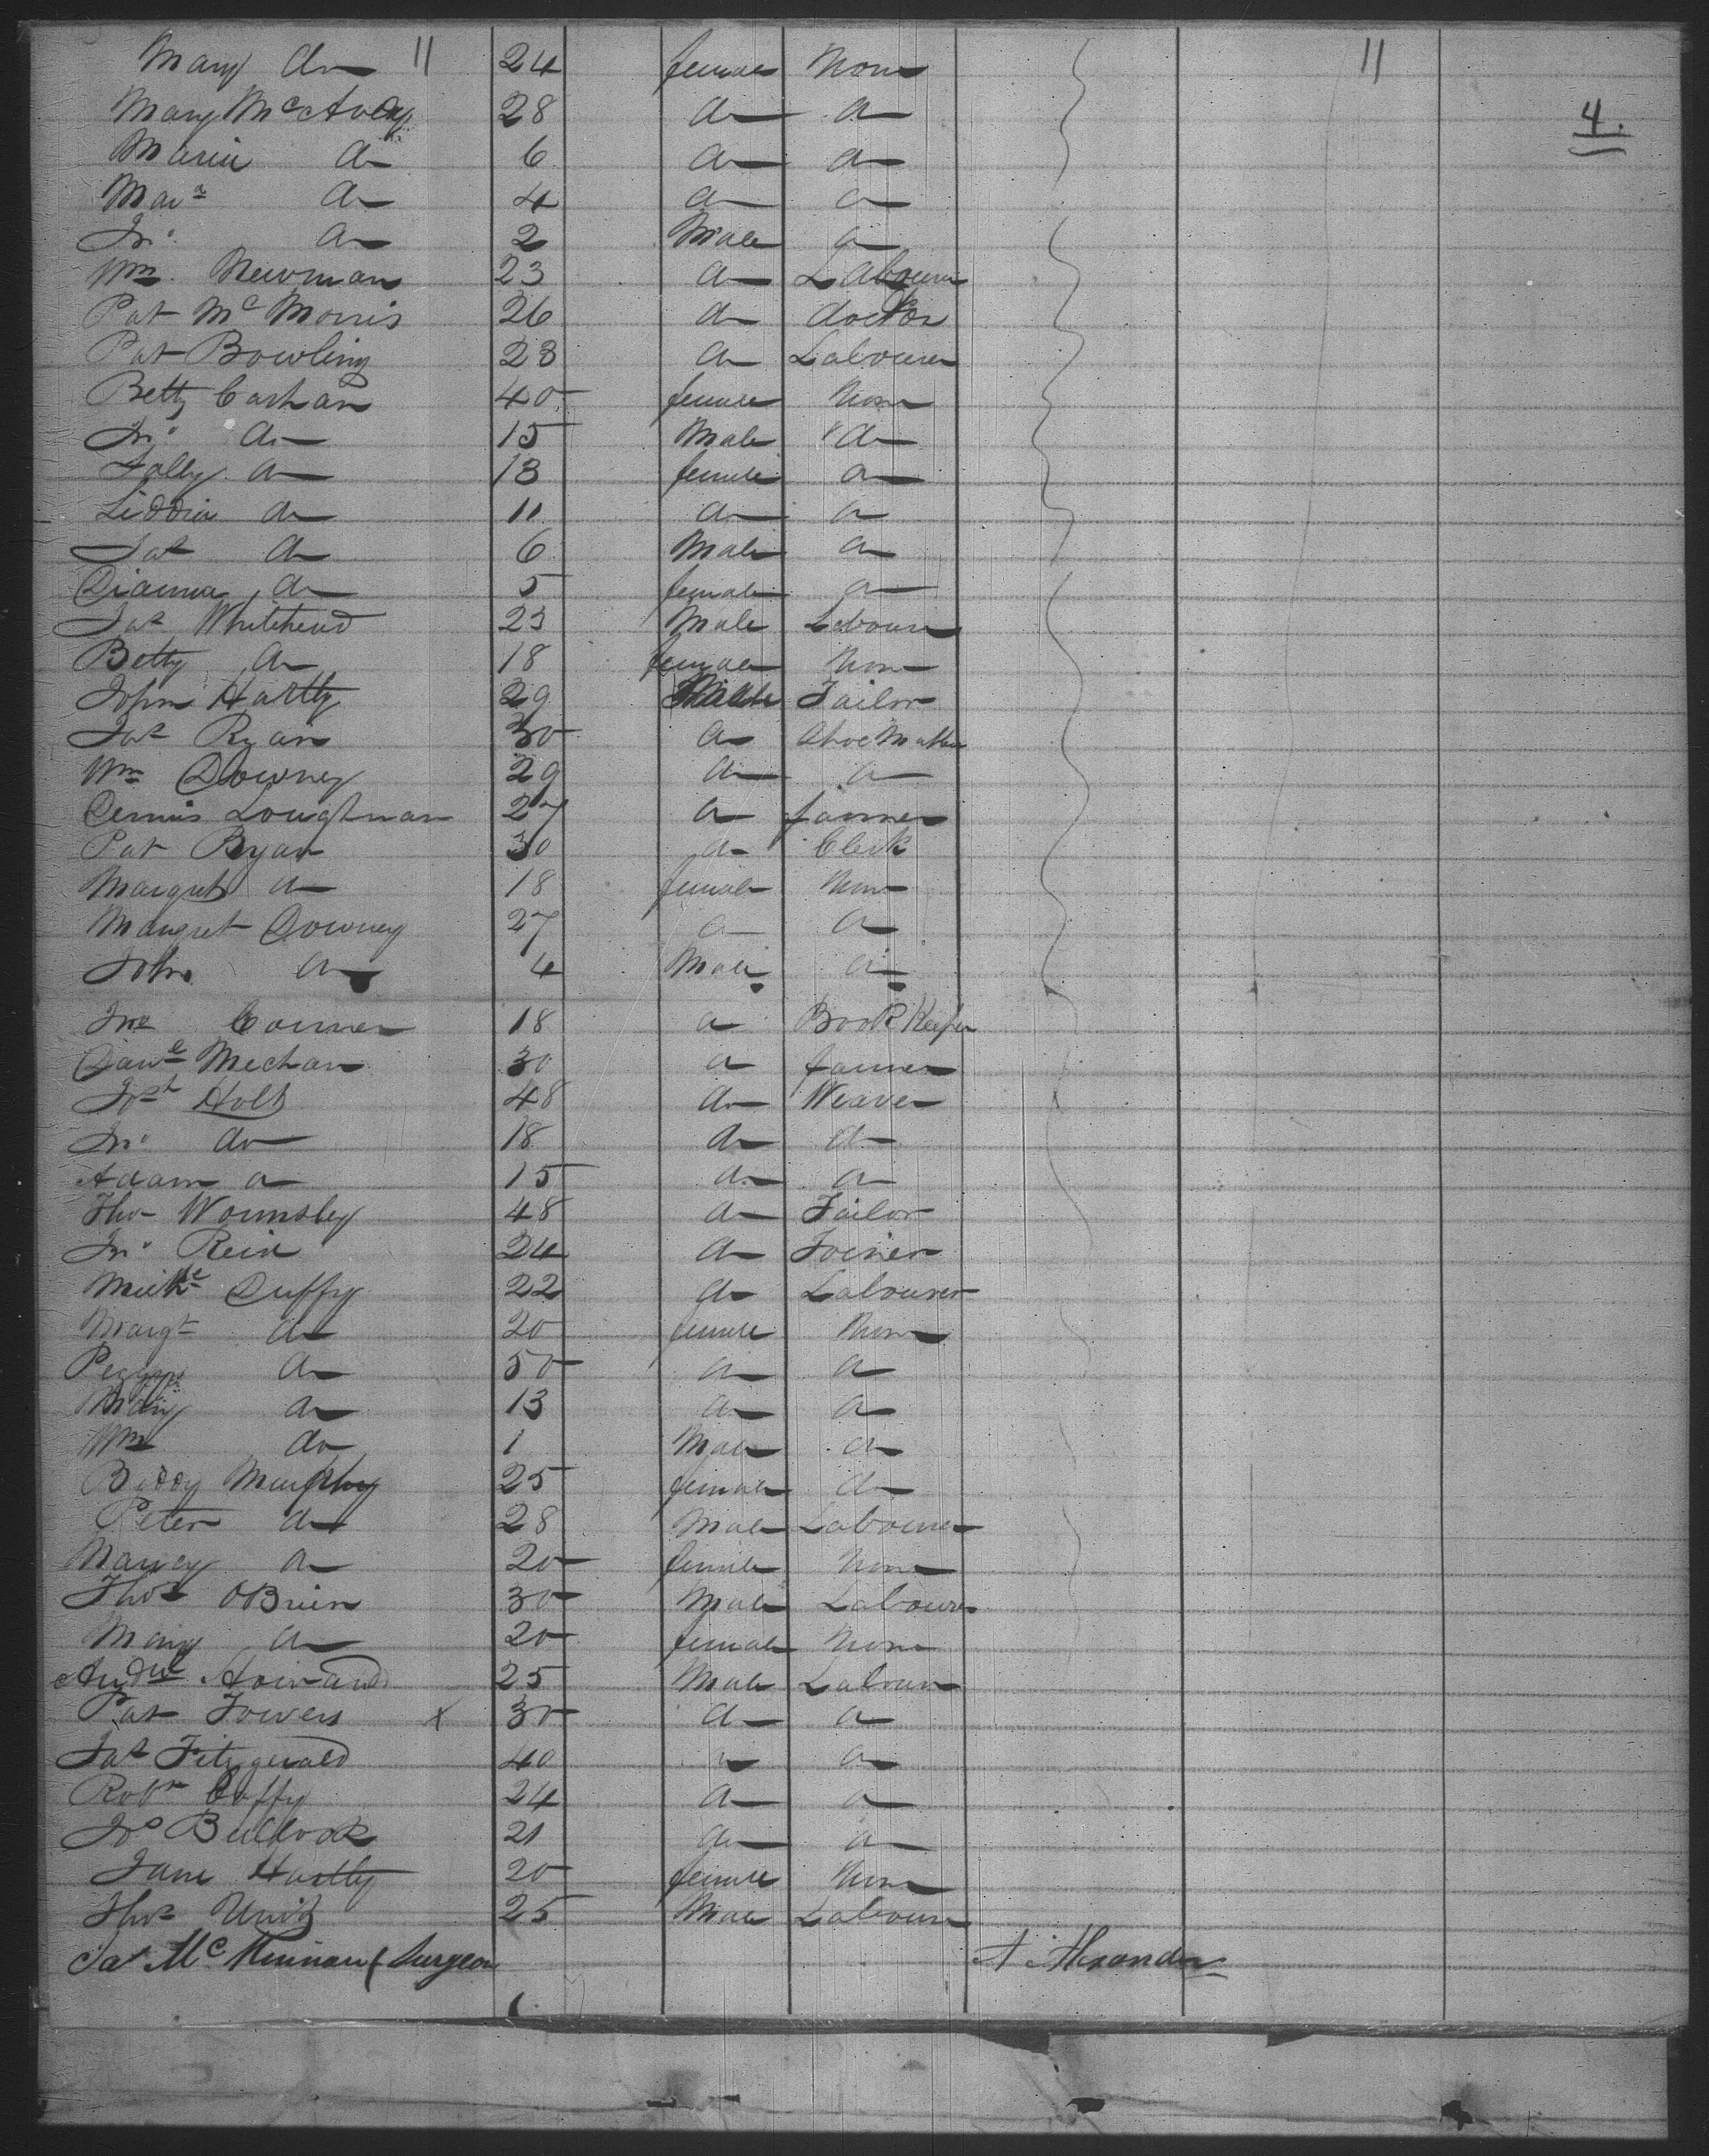 Mary do 11 24 female None 11
Mary McAvoy 28 do do 4.
Maria do 6 do do
Mar^a do 4 do do
Jn^o do 2 Male do
Wm Newman 23 do Labourer
Pat McMorris 26 do doctor
Pat Bowling 28 do Labourer
Betty Cashan 40 female None
Jn^o do 15 Male do
Sally do 13 female do
Liddia do 11 do do
Jas do 6 Male do
Dianna do 5 female do
Jas Whitehead 23 Male Labourer
Betty do 18 female None
John Hartly 29 Male Tailor
Jas Ryan 30 do Shoe Maker
Wm Downey 29 do do
Dennis Loughman 27 do farmer
Pat Ryan 30 do Clerk
Margret do 18 female None
Margret Downey 27 do do
John do 4 Male do
Jno Conner 18 do Book Keeper
Dan^l Mechan 30 do farmer
Jos^h Holt 48 do Weaver
Jn^o do 18 do do
Adam do 15 do do
Tho^s Wormsley 48 do Tailor
Jn^o Reid 24 do Joiner
Mich^l Duffy 22 do Labourer
Margt do 20 female None
Peggy do 50 do do
Mary do 13 do do
Wm do 1 Male do
Biddy Murphy 25 female do
Peter do 28 Male Labourer
Nancy do 20 female None
Tho^s OBrien 30 Male Labourer
Mary do 20 female None
Andw Howard 25 Male Labourer
Pat Towers x 30 do do
Jas Fitzgerald 40 do do
Robt Coffy 24 do do
Jos Bullook 21 do do
Jane Hartly 20 female None
Tho^s 25 Male Labourer
Ja^s McKinnon Surgeon A Alexander